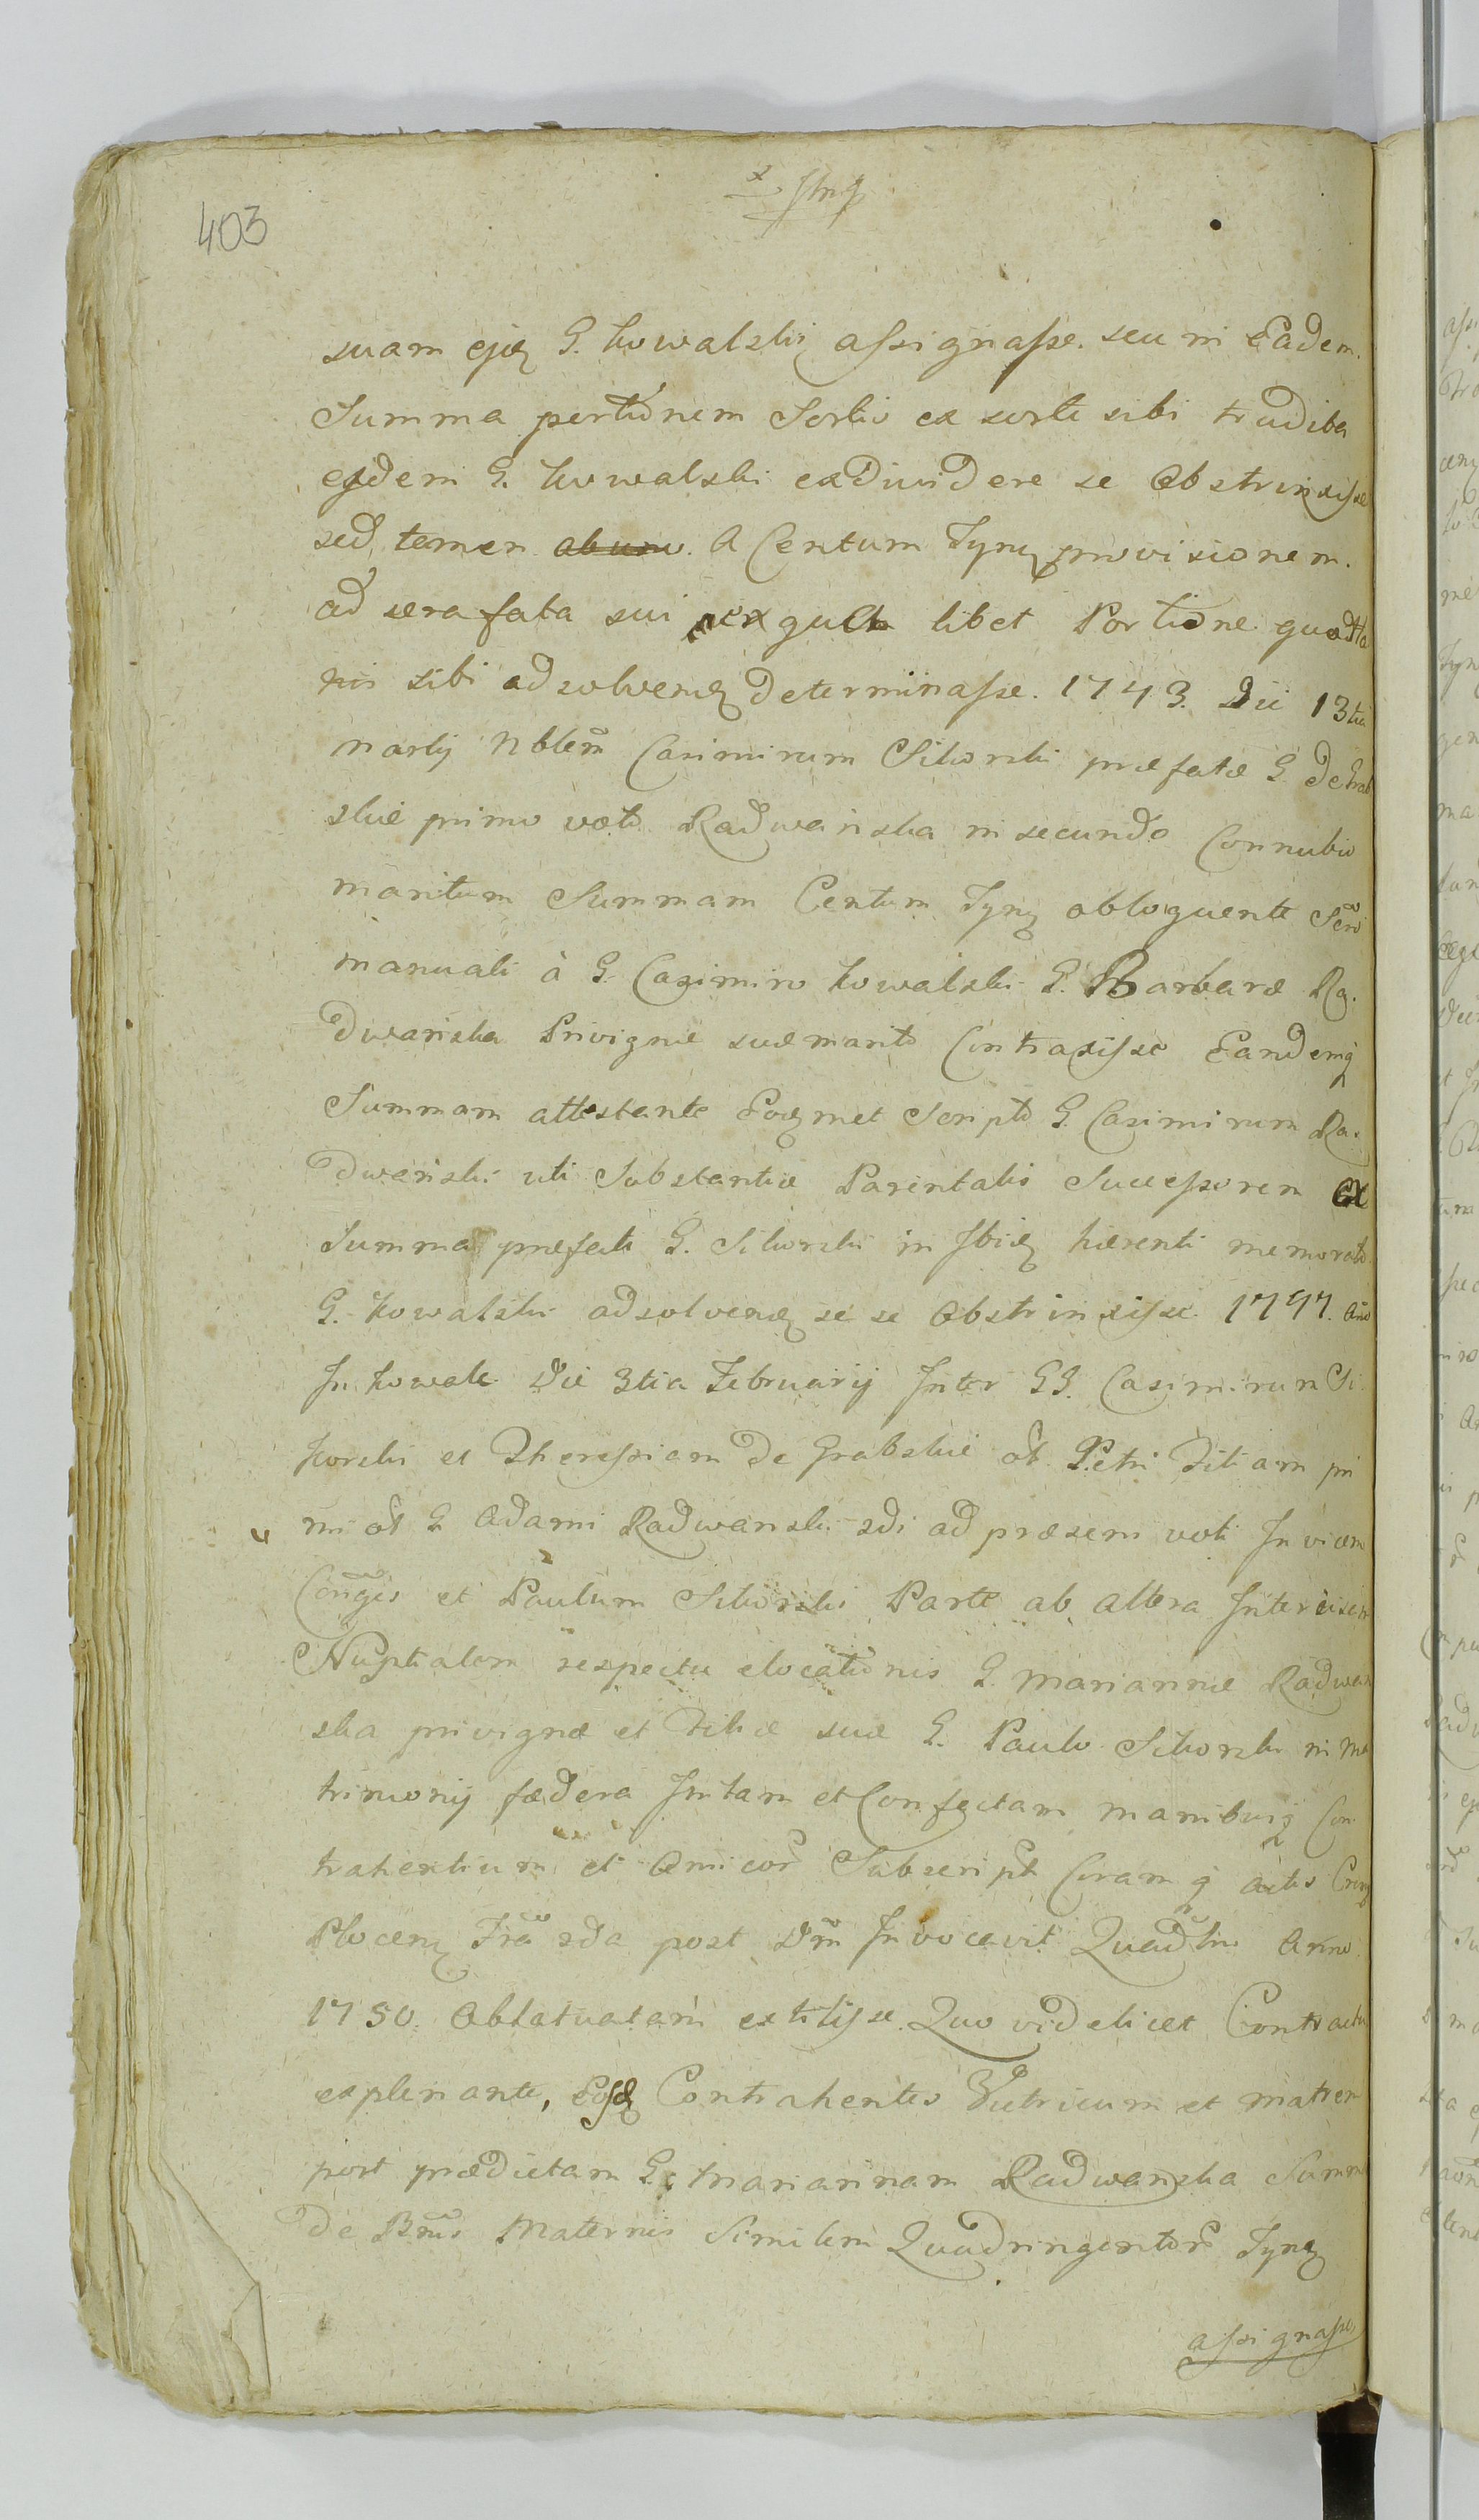 403
suam ejq G. Kowalski assignasse. seu in Eadem.
Summa pertionem Sortis ex sorte sibi tradita
ejdem G. Kowalski exdividere se Obstrinxisse
sed tamen A Centum Tynq provisionem.
ad sera fata sui libet Portione quotta
nis sibi adsolvenq determinasse. 1743. Die 13tia
Martij Nblem Casimirum Sikorski præfatæ G. de Grab
skie primo voto Radwanska in secundo Connubio
maritum Summam Centum Tynq obloquente Scro
manuali à G. Casimiro Kowalski G. Barbaræ Ra.
dwanska Privignæ suæ marito Contraxisse Eandemq
Summam attestante Eoqmet Scripto G. Casimirum Ra.
dwanski uti Substantiæ Parentalis Successorem Ex
Summa præfati G. Sikorski in hærenti memorato
G. Kowalski adsolvenq se se Obstrinxisse 1747. Ano
In Kowale Die 3tia Februarij Inter GG. Casimirum Si.
korski et Theressiam de Grabskie ol. Petri Filiam pri
mi ol G Adami Radwanski 2di ad præsens voti Invicem
Conges et Paulum Sikorski Parte ab altera Intercisam
Nuptialem respectu elocationis G. Mariannæ Radwan
ska privignæ et Filiæ suæ G. Paulo Sikorski in Ma
trimonij fædera Initam et Confectam manibusq Con
trahentium et Amicor Subscript Coramq actis
Plocenq Fra 2da post Dm Invocavit Quadlis Anno
1750. Oblatuatam extitisse. Quo videlicet Contractu
explenante, Eosdq Contrahentes Vitricum et Matrem
post prædictam G. Mariannam Radwanska Summ
de Bnis Maternis Similem Quadringentor Tynq
assignasse